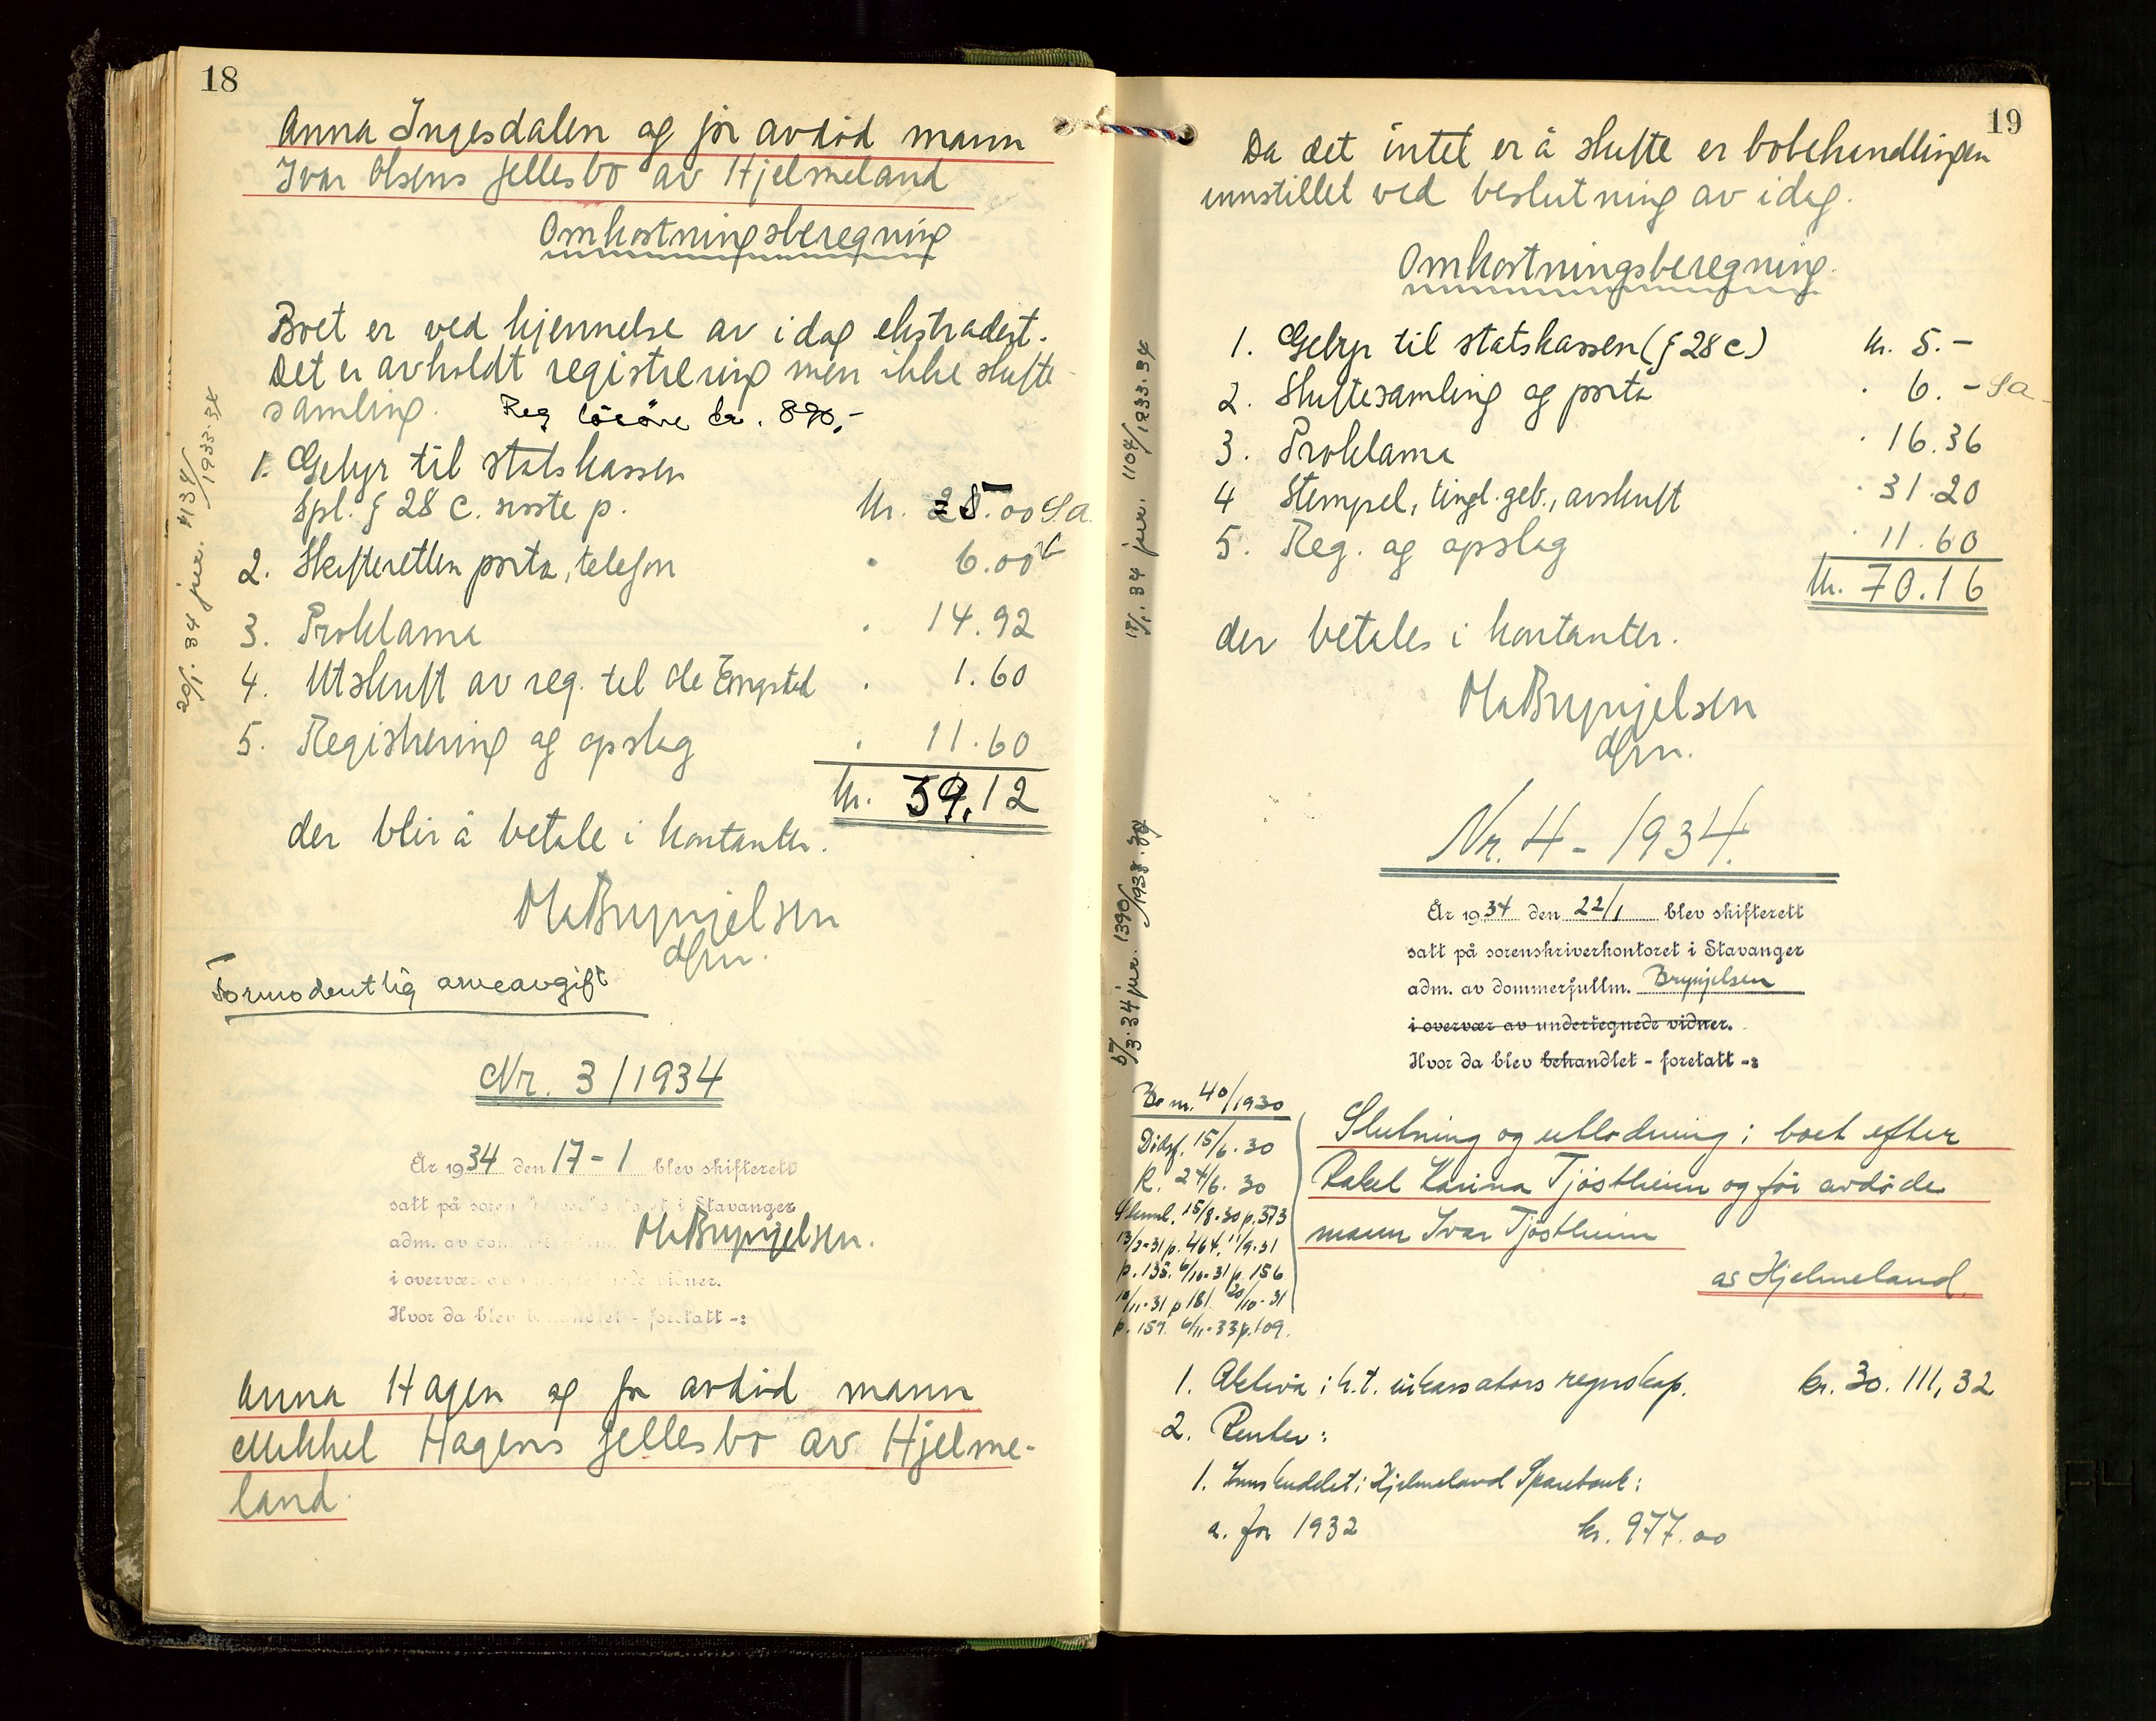 18
Anna Ingesdalen og før avdød mann
Ivar Olsens fellesbo av Hjelmeland
Omkostningsberegning
Boet er ved kjennelse av idag ekstradert.
Det er avholdt registrering men ikke skifte-
samling. Reg løsøre kr. 890,-
1. Gebyr til statskassen
Spl. § 28 c. siste p. kr. 5.00 Sa.
2. Skifteretten porto, telefon " 6.00
3. Proklama " 14.92
4. Utskrift av reg. til de Engsted " 1.60
5. Registrering og opslag " 11.60
kr. 39,12
der blir å betale i kontanter.
Ola Brynjelsen
dfm.
Formodentlig arveavgift
20/1. 34 jur. 1134/1933-34
Nr. 3/1934
År 1934 den 17-1 blev skifterett
satt på sorenskriverkontoret i Stavanger
adm. av Ola Brynjelsen.
i overvær av undertegnede vidner.
Hvor da blev behandlet - foretatt -:
Anna Hagen og før avdød mann
Mikkel Hagens fellesbo av Hjelme-
land.
19
Da det intet er å skifte er bobehandlingen
innstillet ved beslutning av idag.
Omkostningsberegning.
1. Gebyr til statskassen (§ 28 c) kr. 5.-
2. Skiftesamling og porto " 6.- Sa
3. Proklama " 16.36
4 Stempel, tingl. geb., avskrift " 31.20
5. Reg. og opslag " 11.60
kr. 70.16
der betales i kontanter.
Ola Brynjelsen
dfm.
18/1. 34 jur. 1104/1933-34
Nr. 4 - 1934.
År 1934 den 22/1 blev skifterett
satt på sorenskriverkontoret i Stavanger
adm. av dommerfullm. Brynjelsen
i overvær av undertegnede vidner.
Hvor da blev behandlet - foretatt -:
5/3.34 jur. 1390/1933-34
Bo nr. 40/1930
Dødsf. 15/6. 30
R. 24/6. 30
Skuml. 15/8-30 p. 373
13/2-31 p. 464. 11/9-31
p. 135. 6/10-31 p. 156
10/11-31 p 181. 20/10-31
p. 159. 6/11-33 p. 109.
Slutning og utlodning i boet efter
Rakel Karina Tjøstheim og før avdøde
mann Ivar Tjøstheim
av Hjelmeland.
1. Aktiva i h.t. inkassators regnskap. kr. 30.111,32
2. Renter:
1. Innskuddet i Hjelmeland Sparebank:
a. for 1932 kr. 977.00